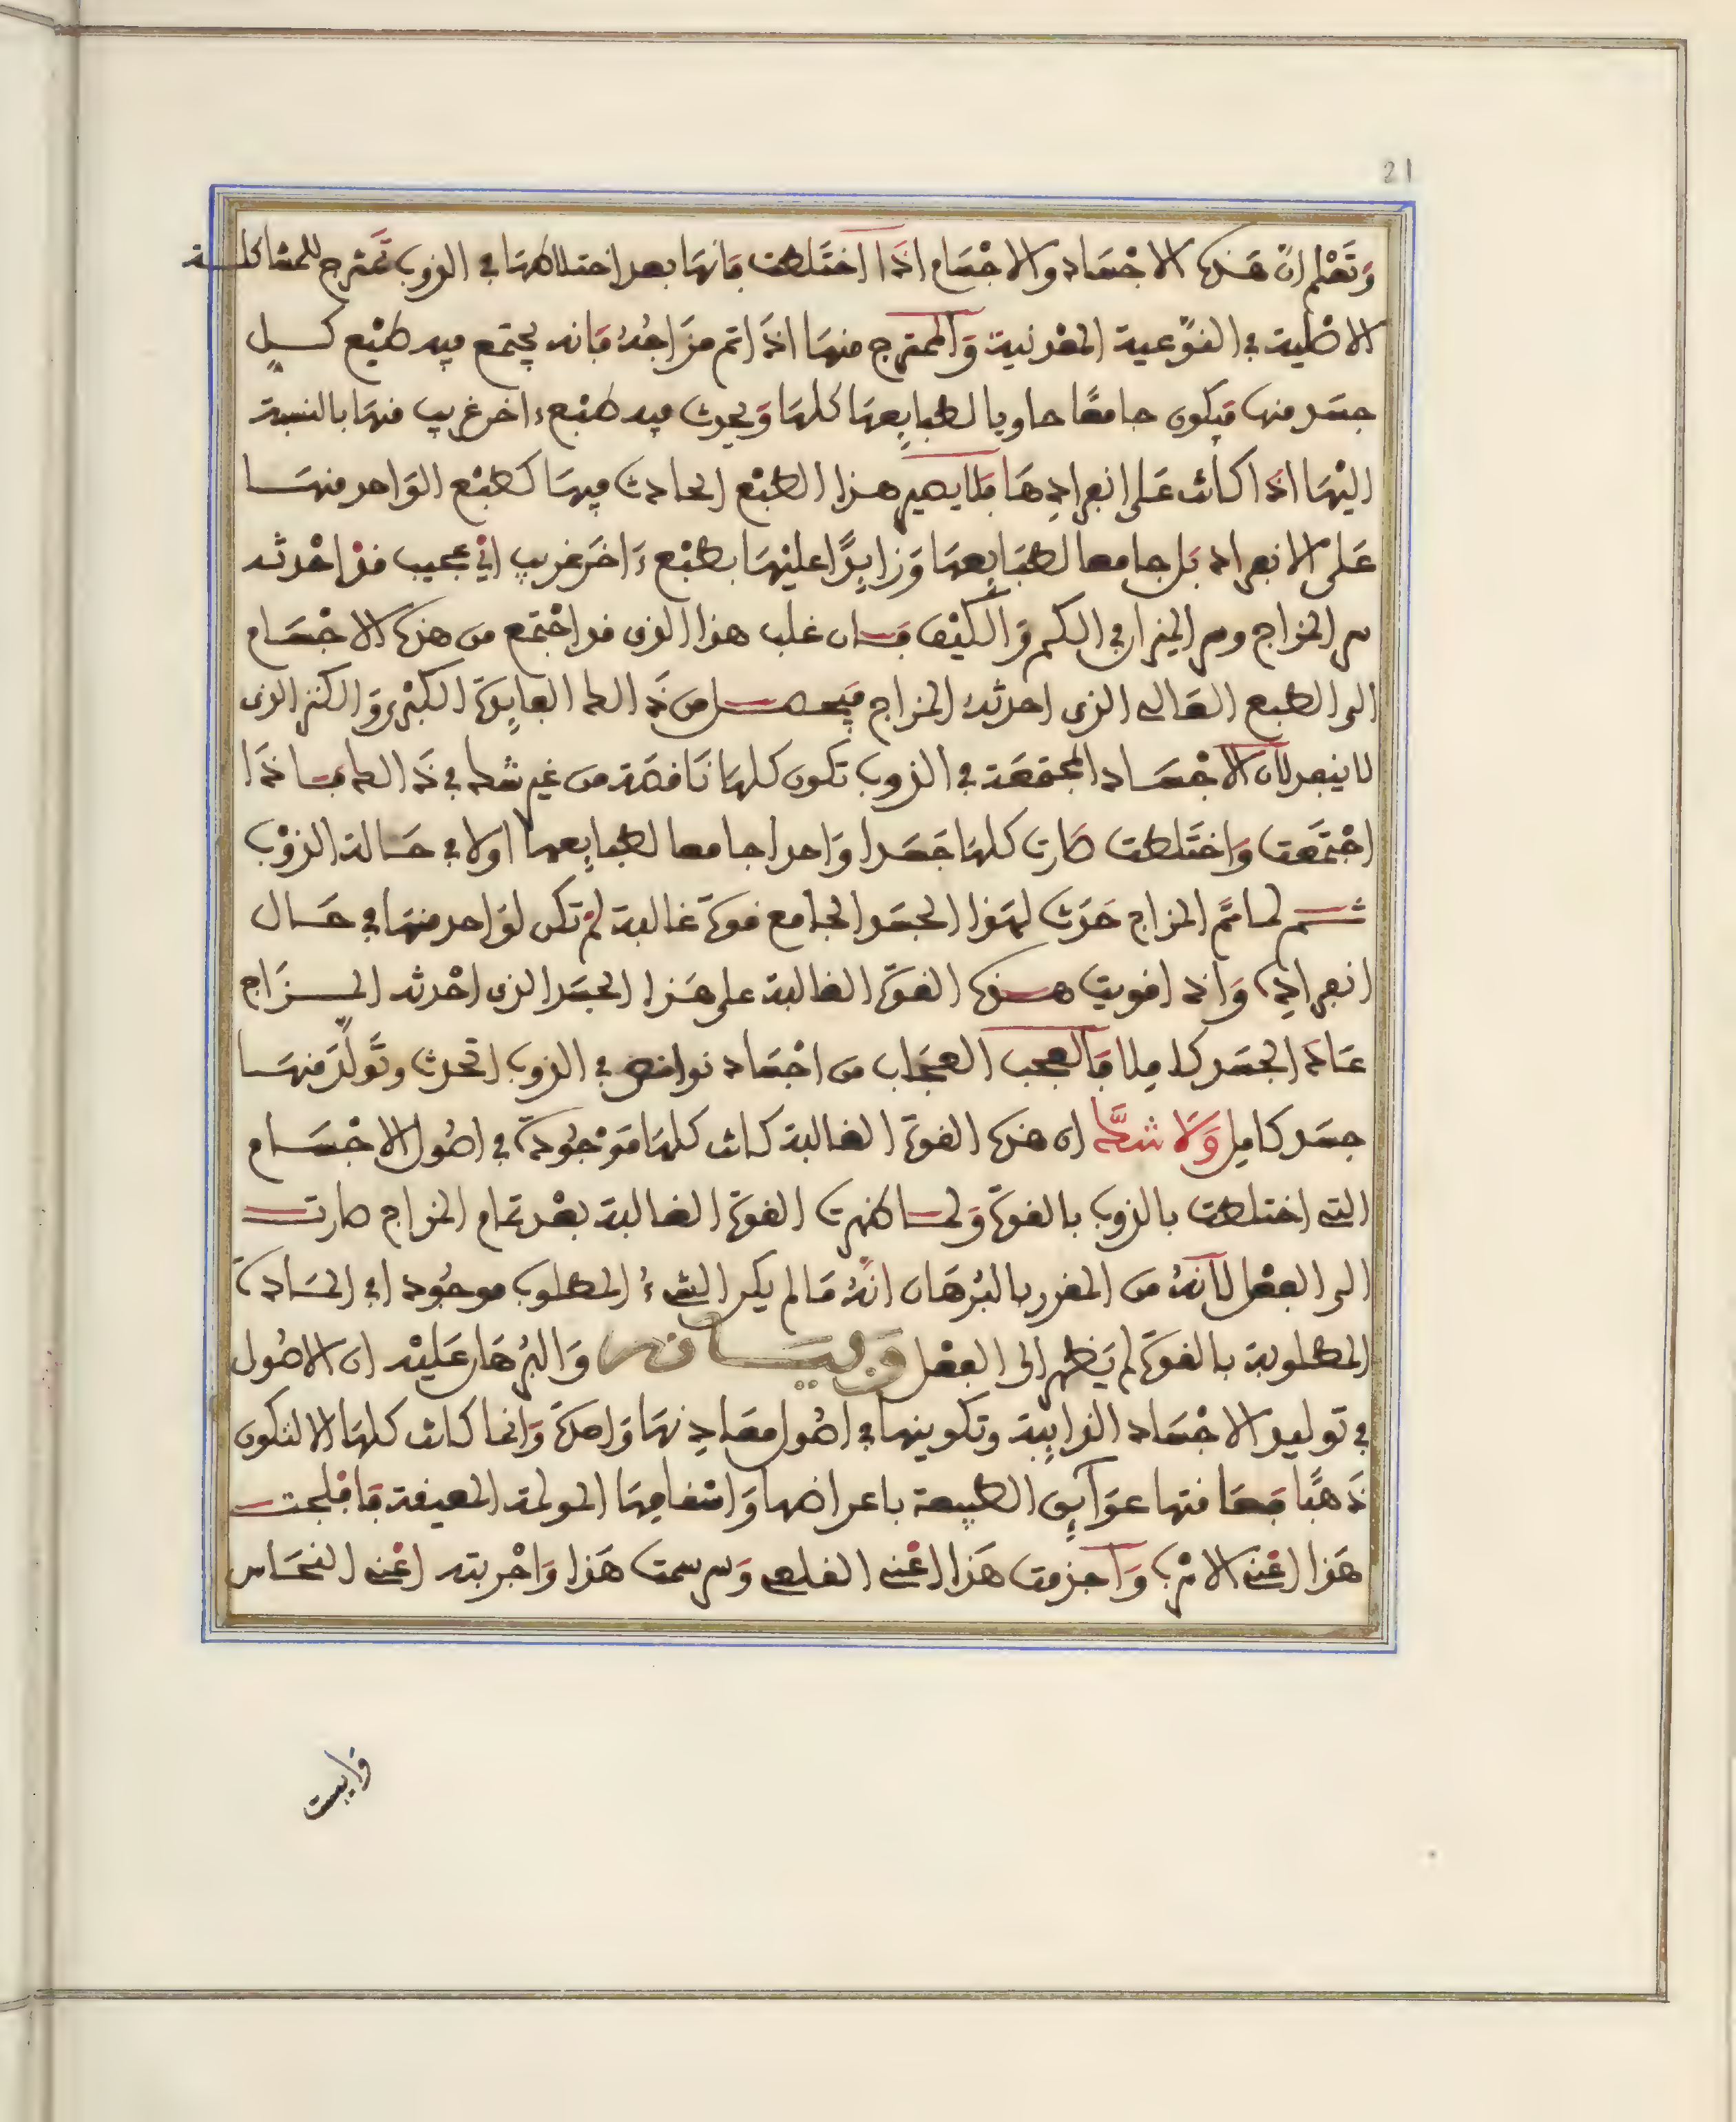 21
وَتَعْلم انّ هَذه الاجْسَاد والاجْسَام اذَا اخْتَلطت فَانهَا بعد اختلاطهَا في الذوب تَمتزج للمشاكلة
الاصْلية في النّوْعية المعْدنية وَالممتزج منهَا اذَا تم مزَاجُهُ فَانه يجتمع فيه طبْع كل
جسَد منها فيَكون جامعًا حاويا لطبايعهَا كلهَا وَيحدث فيه طبْع ءاخر غريب منهَا بالنسبة
اليْهَا اذَا كانت عَلى انفرادِهَا فَلا يصير هذا الطبْع الحادث فيهَا كطبْع الوَاحد منهَا
عَلى الانفراد بَل جامعا لطبَايعهَا وَزايدًا عليْهَا بطبْع ءَاخَر غريب اي عجيب قدْ احْدثه
سر المزاج وسر الميزان في الكم وَالكيْف فَان غلب هذا الذي قد اجْتمع من هذه الاجْسَام
الى الطبع الغَالب الذي احدثهُ المزاج فيَحصل من ذَالك الفايدَة الكبْرى وَالكنز الذي
لا ينفد لان الاجْسَاد المجتمعَة في الذوب تكون كلهَا نَاقصَة من غير شك في ذَالك فاذَا
اجْتمَعَت وَاخْتَلطت صَارت كلهَا جَسَدا وَاحدا جامعا لطبايعها اولا في حَالة الذوْب
ثم لما تَم المزاج حَدَث لهَذا الجسَد الجامع قوة غالبة لمْ تكن لوَاحد منهَا في حَال
انفرادِه وَاذا قويت هذه القوّة الغالبة على هَذا الجسَد الذي احْدثه المزَاج
عَاد الجسَد كاملا فَالعجب العجَاب من اجْسَاد نواقص في الذوب اتحدت وتَولّدَ منهَا
جسَد كامِل وَلَا شكَّ ان هذه القوة الغالبة كانت كلهَا مَوْجُودَة في اصُول الاجْسَام
التي اختلطت بالذوب بالقوة وَلما ظهرت القوة الغالبة بعْد تمام المزاج صارت
الى الفعْل لانهُ من المقرر بالبُرهَان انّهُ مَا لم يكن الشيءُ المطلوب موجُود اي المَادة
المطلوبة بالقوة لم يَظهر الى الفعْل وبيانه وَالبُرهَان عَليْه ان الاصُول
في توليد الاجْسَاد الذايبة وتكوينها في اصُول معَادِنهَا وَاحدَة وَانما كانت كلهَا الا لتكون
ذَهبًا فعَاقتها عوَايق الطبيعة باعراضها وَاسْقامِهَا المولمة المعيقة فَافْلجت
هَذا اعْني الاسْرب وَاجزمت هَذا اعْني القلعي وَبرسمت هَذا وَاجْربته اعْني النحَاس
وايبست